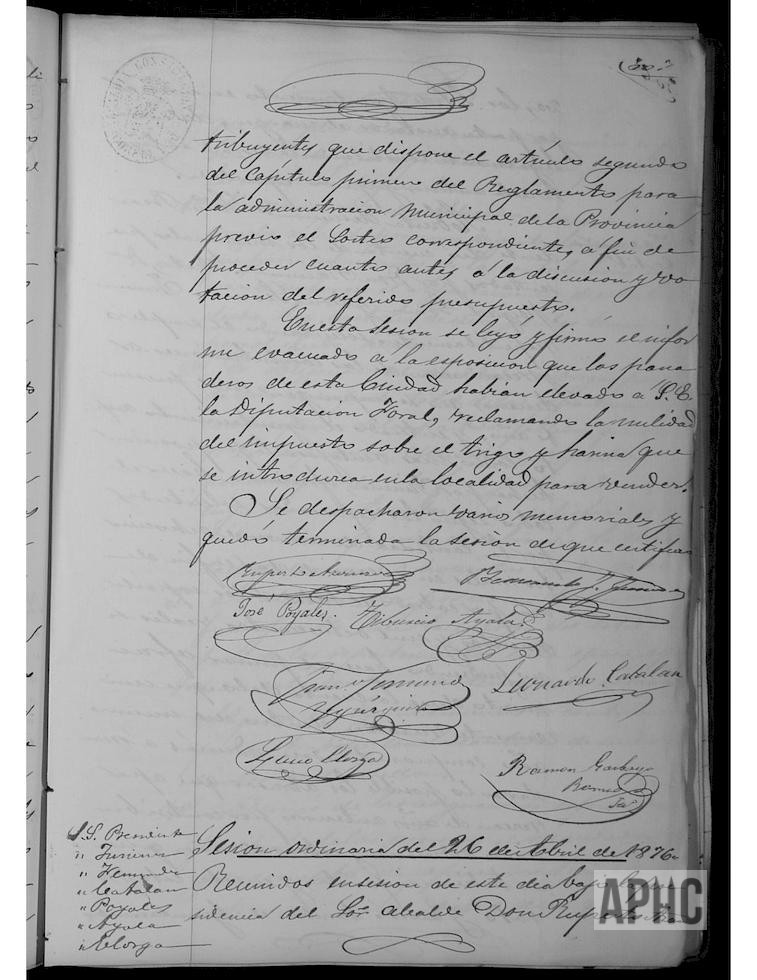 tribuyentes que dispone el artículo segundo
del Capítulo primero del Reglamento para
la administracion Municipal de la Provincia
previo el Sorteo correspondiente, á fin de
proceder cuanto antes á la discusion y vo
tacion del referido presupuesto.
En esta sesion se leyó y firmó el infor
me evacuado a la esposicion que los pana
deros de esta Ciudad habian elevado a S.E.
la Diputacion Foral, reclamando la nulidad
del impuesto sobre el trigo y harina que
se introduzca en la localidad para vender.
Se despacharon varios memoriales y
quedó terminada la sesion de que certifico
Ruperto
José Poyales. Tiburcio Ayala
Juan Jimeno
Leonardo Catalan
Lucio Elorga
Ramon Garbayo
Srio
S. Presidente
Sesion ordinaria del 26 de Abril de 1876.
" Catalan
Reunidos en sesion de este dia bajo la pre
" Poyales
sidencia del Sor. Alcalde Don Ruperto
" Ayala
" Elorga
APHC